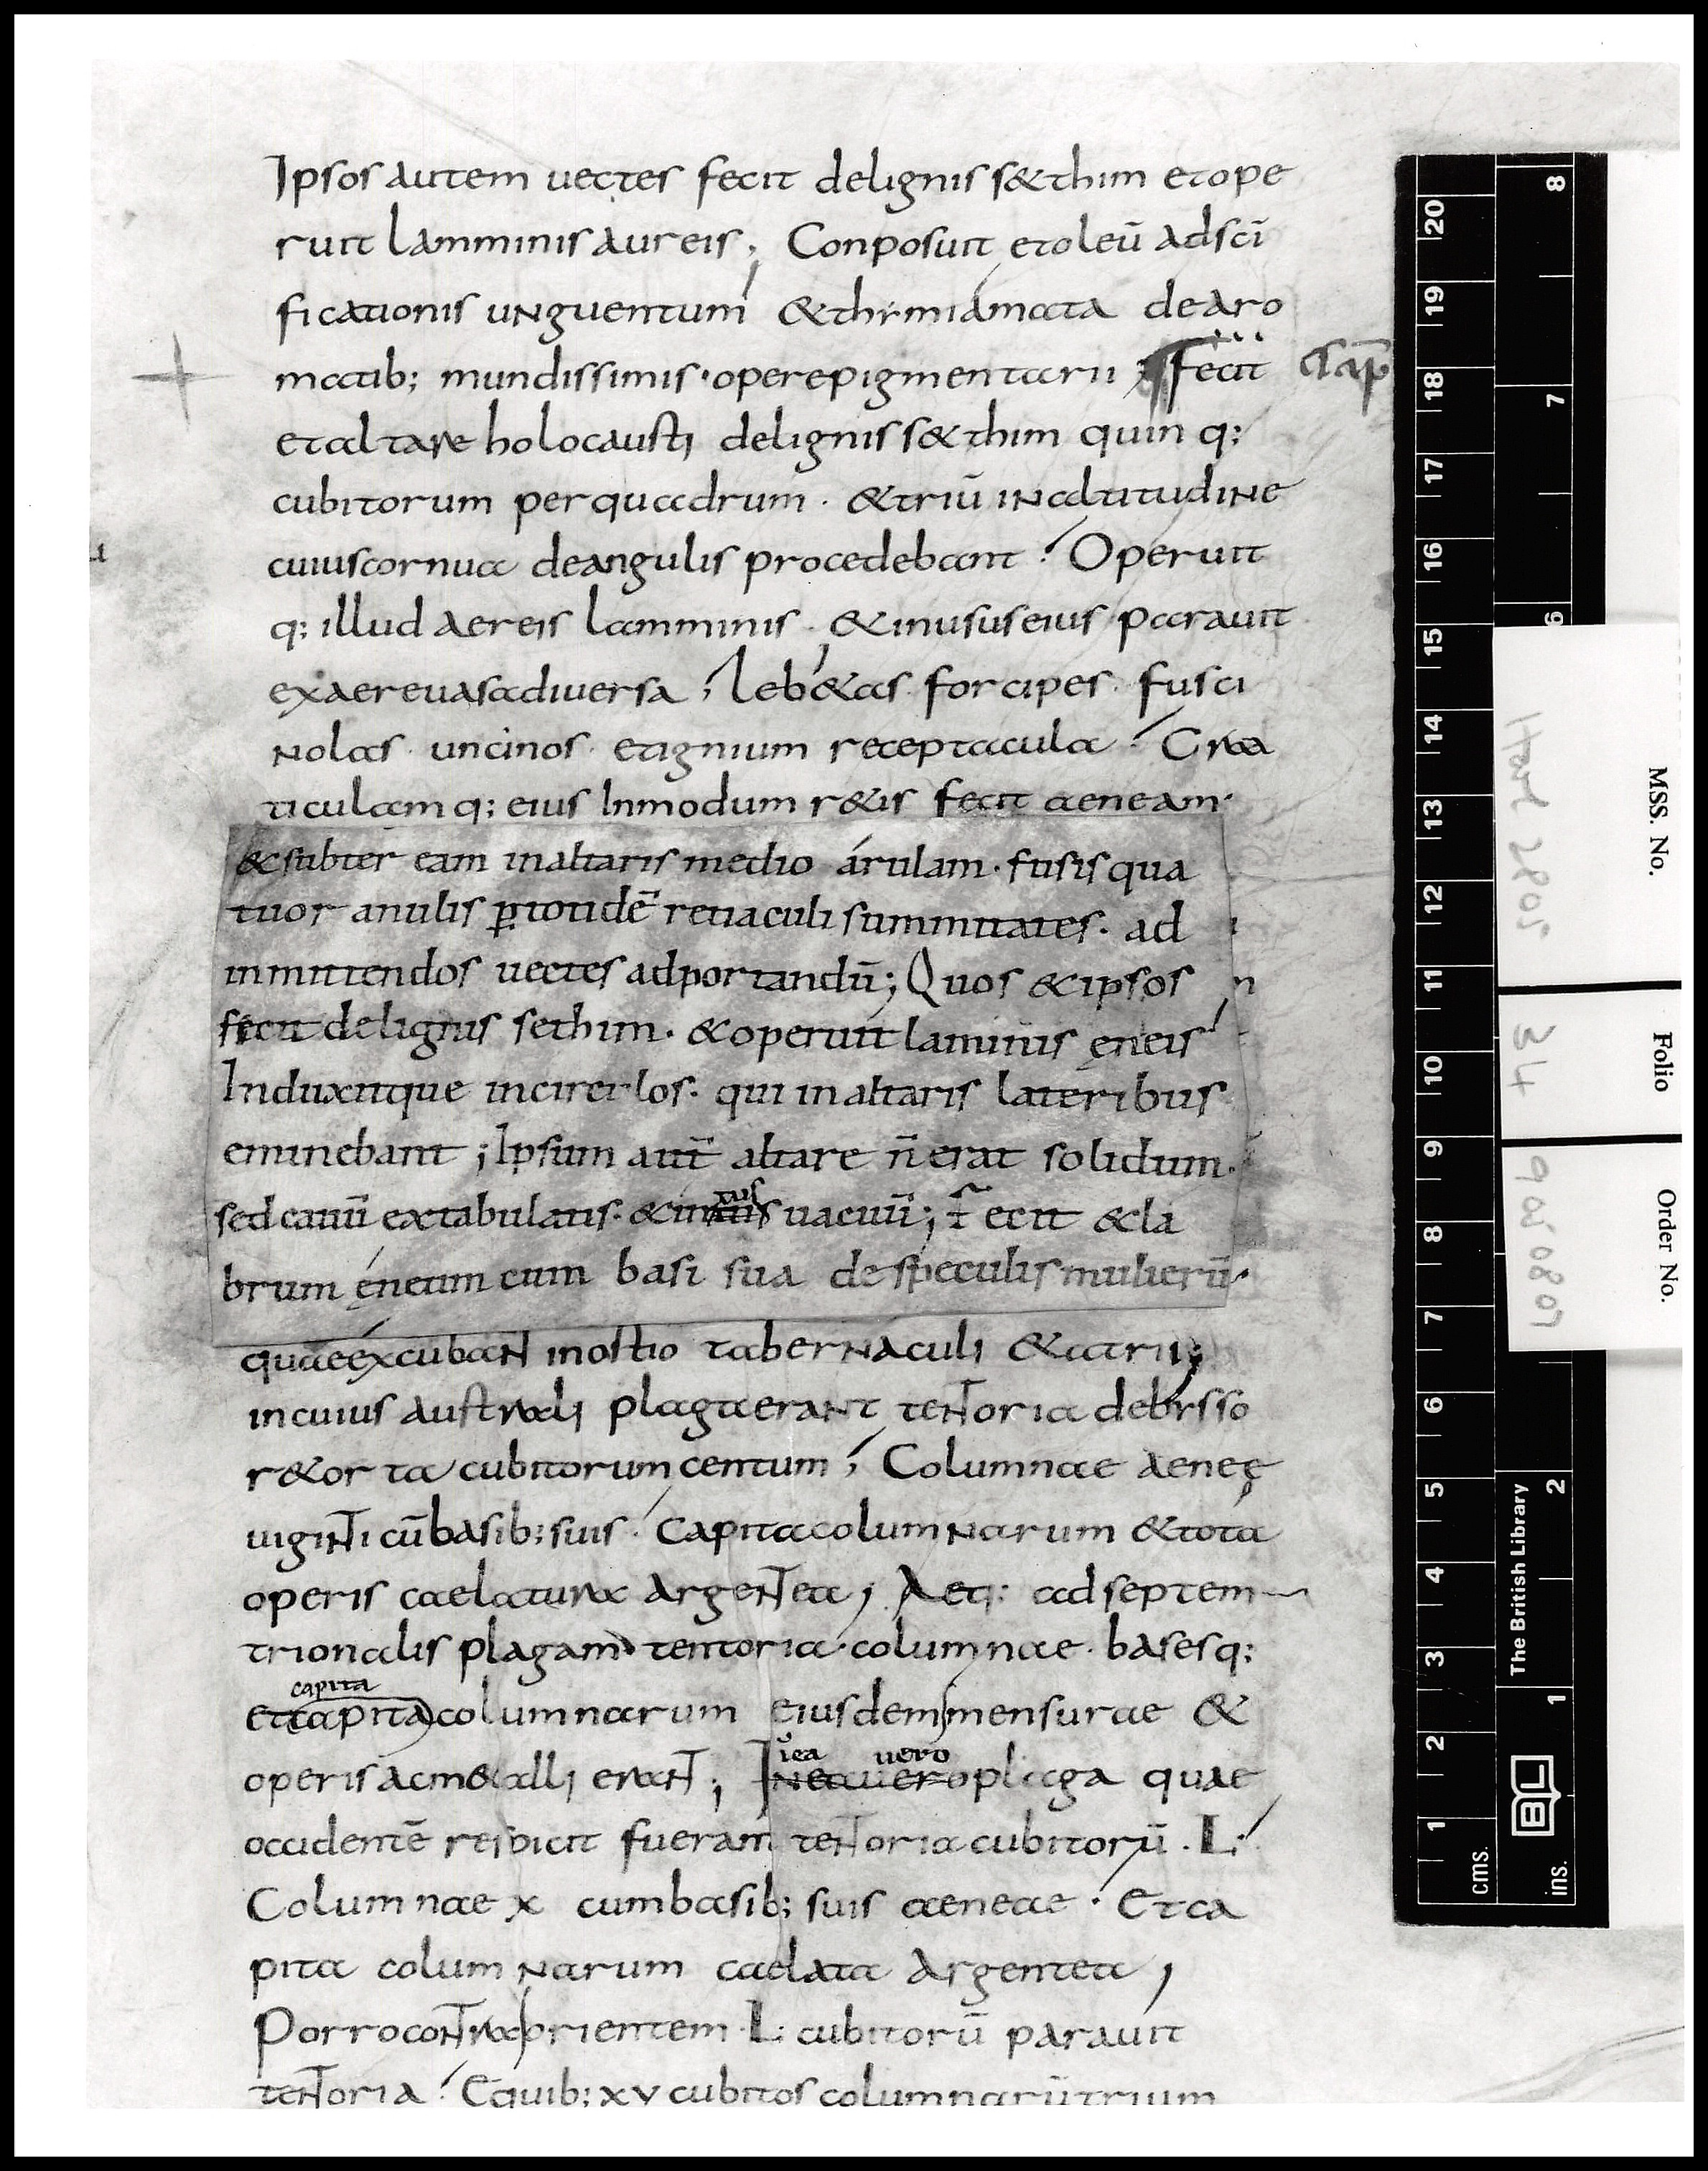 Ipsos autem uectes fecit delignis s&thim etope
ruit lamminis aureis; Conposuit etoleū adsc̄i
ficationis unguentum &thimiamata dearo
matib; mundissimis · operepigmentarii Fecit Cap̄
etaltare holocausti delignis s&thim quinq;
cubitorum per quadrum · &triū inaltitudine
cuiuscornua deangulis procedebant · Operuit
q; illud aereis lamminis · &inususeius parauit
exaereuasadiuersa ; leb&as · forcipes · fusci
nolas · uncinos · etignium receptacula · Cra
ticulamq; eius Inmodum r&is fecit aeneam ·
&subter eam inaltaris medio árulam · fusis qua
tuor anulis p̱totidē retiaculi summitates · ad
inmittendos uectes adportandū; Quos &ipsos
fecit delignis sethim · &operuit laminis ęneis
Induxitque incirculos · qui inaltaris lateribus
eminebant ; Ipsum aut̄ altare n̄ erat solidum ·
sed cauū extabulatis · &intus uacuū; Fecit &la
tus
brum ęneum cum basi sua despeculis mulierū ·
quaeexcubant inostio tabernaculi &atrii;
incuius australi plagaerant tentoria debysso
r&orta cubitorum centum ; Columnae aeneę
uiginti cūbasib; suis · Capitacolumnarum &tota
operis caelatura argentea; Aeq; adseptem
trionalis plagam tentoria · columnae · basesq;
capita
etcapita columnarum eiusdem mensurae &
operis acm&alli erant; Ineauero plaga quae
iea uero
occidentē respicit fuerant tentoria cubitorū · L ·
Columnae x cumbasib; suis aeneae · Etca
pita columnarum caelata argentea ;
Porrocontra orientem · L · cubitorū parauit
tentoria · Equib; xv cubitos columnarū trium
cms.
1
2
3
4
5
6
7
8
9
10
11
12
13
14
15
16
17
18
19
20
ins.
1
2
6
7
8
BL
The British Library
MSS. No.
Harl 2805
Folio
34
Order No.